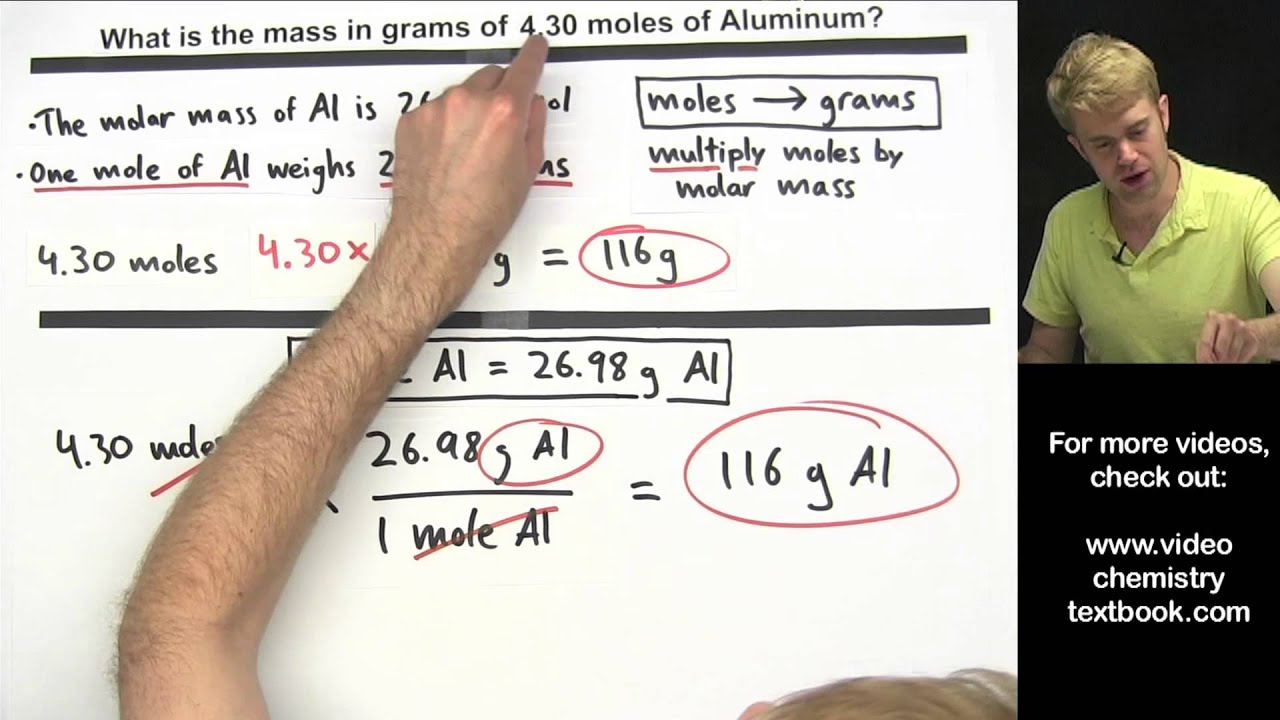 What is the mass in grams of 4.30 moles of Aluminum?
·The molar mass of Al is 26
·One mole of Al weighs 2
moles → grams
multiply moles by
molar mass
4.30 moles 4.30× g = 116g
Al = 26.98 g Al
4.30 moles 26.98 g Al
1 mole Al
= 116 g Al
For more videos,
check out:
www.video
chemistry
textbook.com